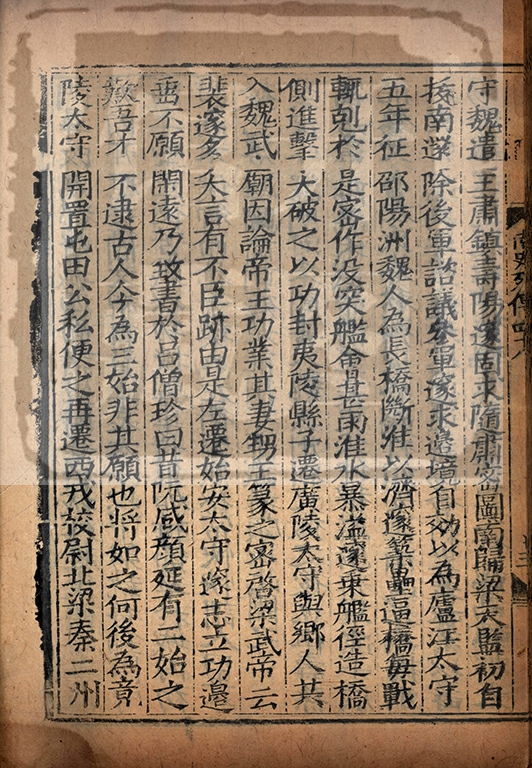 守魏遣王肅鎮壽陽邃固求隨肅密圖南歸梁天監初自
拔南還除後軍諮議參軍邃求邊境自効以為廬江太守
五年征邵陽洲魏人為長橋斷淮以濟邃築壘逼橋每戰
輒剋於是密作没突艦會甚雨淮水暴溢邃乗艦徑造橋
側進擊大破之以功封夷陵縣子遷廣陵太守與鄉人共
入魏武廟因論帝王功業其妻甥王篆之密啓梁武帝云
裴邃多大言有不臣跡由是左遷始安太守邃志立功邊
垂不願閑遠乃致書於吕僧珍曰昔阮咸顔延有二始之
歎吾才不逮古人今為三始非其願也將如之何後為竟
陵太守開置屯田公私便之再遷西戎校尉北梁秦二州
南史列傳四十八